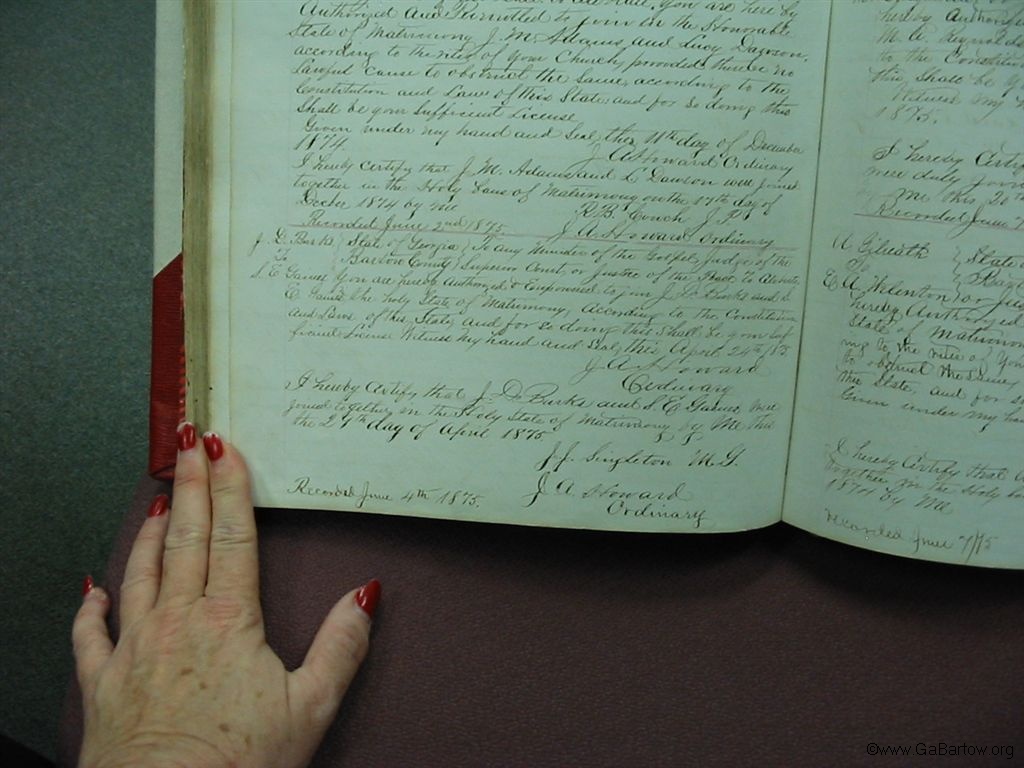 you are here by
Authorized and Permitted to join in the Honorable
State of Matrimony J. M. Adams and Lucy Dawson,
according to the rites of your Church, provided there is no
Lawful cause to obstruct the same, according to the
Constitution and Laws of this State, and for so doing this
Shall be your Sufficient License
Given under my hand and Seal this 11th day of December
1874.
J A Howard Ordinary
I hereby certify that J. M. Adams and L Dawson were joined
together in the Holy Laws of Matrimony on the 17th day of
1874 by me
J. P.
Recorded June 2nd 1875. J. A. Howard Ordinary
J. D. Burks State of Georgia To any Minister of the Gospel, Judge of the
To Bartow County Superior Court, or Justice of the Peace To
S. E. Gaines You are hereby Authorized & Empowered to join J. D. Burks and S.
E. Gaines the Holy State of Matrimony, according to the Constitution
and Laws of this State, and for so doing this Shall be your Suf
ficient License Witness my hand and Seal, this April 24th/75
J A Howard
Ordinary
I hereby Certify that J. D. Burks and S. E Gaines were
joined together in the Holy State of Matrimony by Me this
the 29th day of April 1875
J. J. Singleton M. G.
Recorded June 4th 1875. J A Howard
Ordinary
hereby authorized
M. A. Reynolds
to the Constitution
this Shall be
Witness my
1875.
I hereby Certify
were duly joined
Me this 30th
Recorded June
A Gilreath State
To
E. A.
hereby Authorized
State of Matrimony
to the rites of your
to obstruct the same
this State, and for so
Given under my hand
I hereby Certify that
together in the Holy
by Me
Recorded June 7/75
©www.GaBartow.org